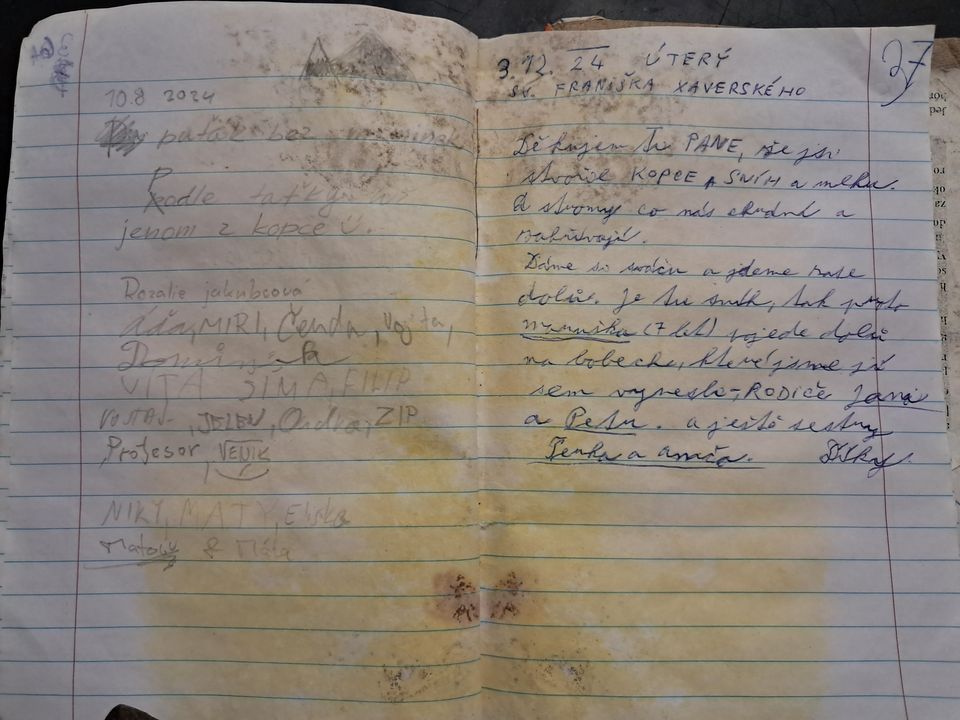 10.8 2024
puťák bez
Podle taťky
jenom z kopce Ü.
Rozalie jakubcová
MIRI, Čenda, Vojta,
VÍŤA ŠÍMA, FILIP
JELEN, Ondra, ZIP
Profesor, VENIK
NIKI, MATY, Eliška
Matouš & Máta
37
3. 12. 24 ÚTERÝ
SV. FRANIŠKA XAVERSKÉHO
Děkujem Ti PANE, že jsi
stvořil KOPCE A SNÍH a mlhu.
A stromy co nás chrání a
Dáme si svačinu a jdeme zase
dolů. Je tu sníh, tak proto
(7 let) pojede dolů
na bobech, které jsme již
sem vynesli, RODIČE Jana
a Petr. a ještě sestry
Lenka a Anča. Díky.